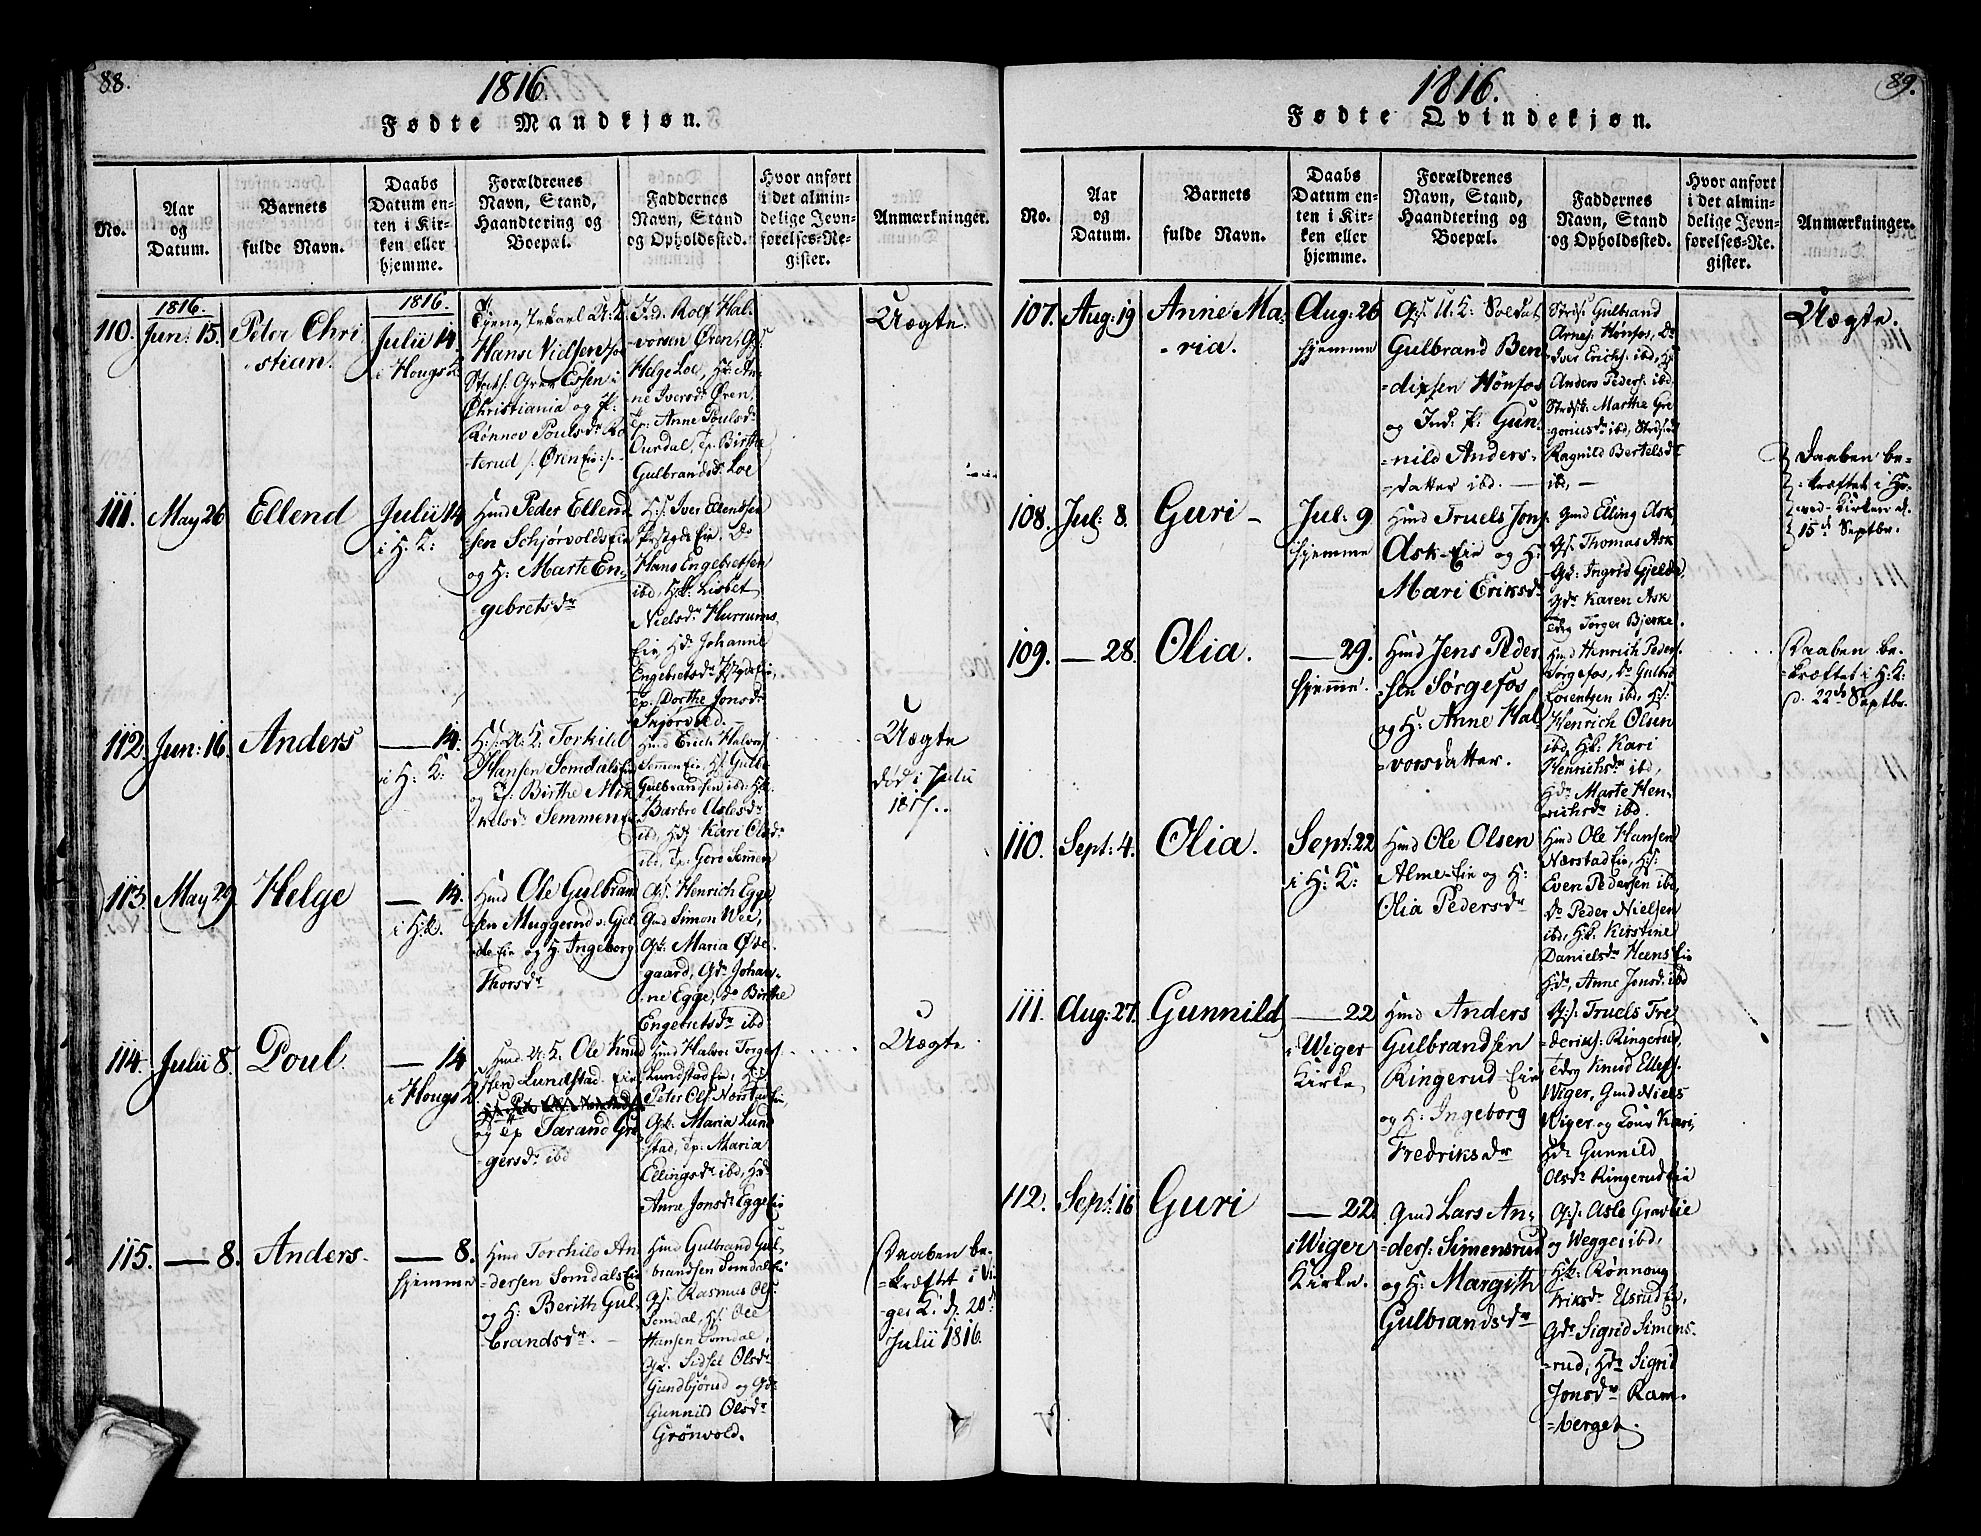 88.
1816
Fødte Mandkjøn.
No.
Aar
og
Datum.
Barnets
fulde Navn.
Daabs
Datum en-
ten i Kir-
ken eller
hjemme.
Forældrenes
Navn, Stand,
Haandtering og
Boepæl.
Faddernes
Navn, Stand
og Opholdssted.
Hvor anført
i det almin-
delige Jevn-
førelses-Re-
gister.
Anmærkninger.
1816.
110. Jun: 15.
Peter Chri
stian.
1816.
Julii 14
Hans Nidsen
Christiania og P:
Rønnov Poulsdr
terud /: Øren Eie :/
Rolf Hal-
vorsen Øren, Gs.
Helge Loe,
ne Iversdr Øren,
Tp: Anne Poulsdr
Tp. Birthe
Gulbrandsdr Loe
Uægte.
111. May 26
Ellend
Julii 14
i H. K:
Hmd Peder Ellend
sen Schjørvolds Eie
og H: Marte En-
gebretsdr
Hs. Iver Ellentsen
Hans Engebretsen
ibd, Hk: Lisbet
Nielsdr Hurrums
Eie Hdr Johanne
Engebretsdr
Tp: Dorthe Jonsdr
Skjørvold.
112. Jun: 16.
Anders
— 14.
i H: K:
Torkild
Hansen Somdals Eie
og P: Birthe Mik
kelsdr Semmen Eie
Hmd Erich Halvors
Semmen Eie, Hs Gulbr
Gulbrandsen, ibd: Hk.
Barbro Aslesdr
ibd, Hdr Kari Olsdr
ibd, Tp: Goro Semmen
Uægte
død i Julii
1817.
113. May 29
Helge
— 14.
i H.K.
Hmd Ole Gulbrand
sen Muggerud v: Gjel
Eie og H. Ingeborg
Thorsdr
Gs. Henrich Egge
Gmd Simon Wee,
Gk: Maria Øde-
gaard, Gdr Johan-
ne Egge, do Birthe
Engebretsdr ibd
114. Julii 8.
Poul.
— 14
i Hougs K
Hmd U: S. Ole Knud
sen Lundstad Eie
og Tp Tarand Gre
gersdr ibd
Hmd Halvor Torgers
Lundstad Eie, Hs:
Peter Ols Nærstad Eie,
Gk: Maria Lund
stad, Tp: Maria
Ellingsdr ibd, Hdr
Anne Jonsdr Egge Eie
Uægte
115. — 8.
Anders.
— 8.
hjemme
Hmd Torchild An
=dersen Somdals Eie
og H: Berith Gul
brandsdr. —
Hmd Gulbrand Gul-
brandsen Somdal Eie
Gs. Rasmus Ols:
Somdal, Hs: Ole
Hansen Somdal,
Gk. Sidsel Olsdr
Gundbjørud og Gdr
Gunnild Olsdr
Grønvold.
Daaben be-
=kræftet i Vi
ger K. d. 20de
Julii 1816.
89.
1816.
Fødte Qvindekjøn.
No.
Aar
og
Datum.
Barnets
fulde Navn.
Daabs
Datum en-
ten i Kir-
ken eller
hjemme.
Forældrenes
Navn, Stand,
Haandtering og
Boepæl.
Faddernes
Navn, Stand
og Opholdssted.
Hvor anført
i det almin-
delige Jevn-
førelses-Re-
gister.
Anmærkninger.
107. Aug: 19
Anne Ma-
=ria.
Aug: 26
hjemme
Soldat
Gulbrand Ben
=dixsen Hønfos
og Ind: P: Gun-
=nild Anders-
=datter ibd. —
Gulbrand
Arnes: Hønfos, Do
Iver Erichs: ibd,
Anders Peders: ibd
Marthe Gre
=goriusdr ibd,
Ragnild Bertelsdr
ibd, —
Uægte.
108. Jul: 8.
Guri —
Jul: 9
hjemme
Hmd Truels Jons:
Ask-Eie og H:
Mari Eriksdr
Gmd Elling Ask,
Gs. Thomas Ask
Gk: Ingrid Gjelde,
Gdr Karen Ask
Torger Bjerke.
Daaben be-
=kræftet i Ho-
=ved-Kirken d.
15de Septbr.
109. — 28.
Olia.
— 29.
hjemme.
Hmd Jens Peder
sen Sørgefos
og H: Anne Hal
=vorsdatter.
Hmd Henrich Peders:
Sørgefos, do Gulbrd
Lorentzen ibd, Hs:
Henrich Olsen
ibd, Hk: Kari
Henrichsdr ibd,
Hdr Marte Hen-
richsdr ibd.
Daaben be-
=kræftet i H.K:
d. 22de Septbr.
110. Sept: 4.
Olia.
Sept: 22
i H: K:
Hmd Ole Olsen
Alme-Eie og H:
Olia Pedersdr
Hmd Ole Hansen
Nærstad Eie, Hs:
Even Pedersen ibd,
do Peder Nielsen
ibd, Hk: Kirstine
Danielsdr Heens Eie
Hdr, Anne Jonsd: ibd
111. Aug: 27.
Gunnild
— 22
i Wiger
Kirke
Hmd Anders
Gulbrandsen
Ringerud Eie
og H: Ingeborg
Fredriksdr
Gs. Truels Fre
=deriks: Ringerud,
Knud Ellefs:
Wiger, Gmd Niels
Wiger og Kone Kari,
Hdr Gunnild
Olsdr Ringerud Eie
112. Sept: 16
Guri
— 22.
i Wiger
Kirke.
Gmd Lars An-
=ders: Simensrud
og H: Margith
Gulbrandsdr
Gs. Asle Gravlie
og Wegger ibd,
Hk: Rønnoug
Eriksdr Elsrud Eie,
Gdr Sigrid Simens-
=rud, Hdr Sigrid
Jonsdr Ram-
=berget.